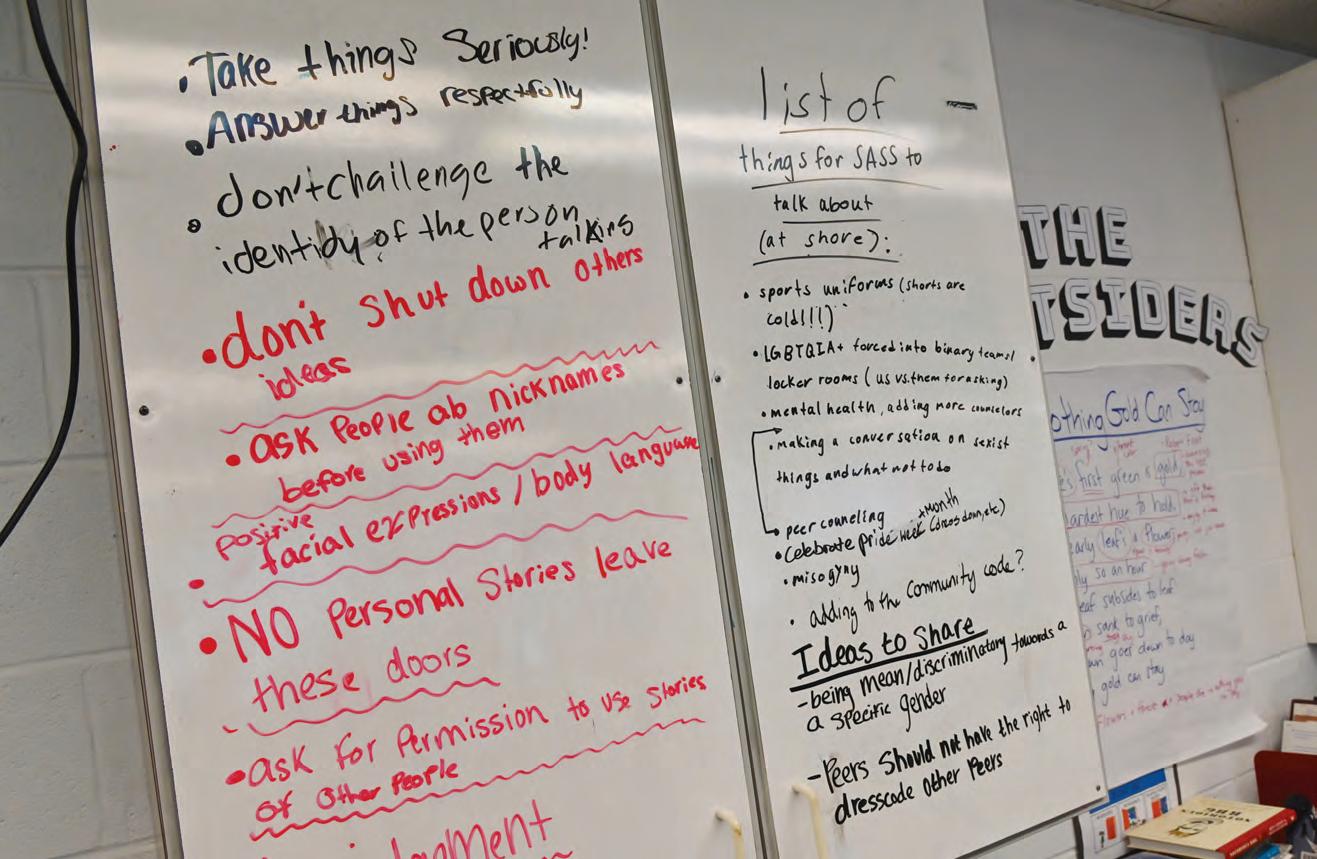 • Take things Seriously!
• Answer things respectfully
• don't challenge the
identidy of the person
talking
• don't shut down others
ideas
• ask People ab nicknames
before using them
positive
• facial expressions / body language
• NO Personal Stories leave
these doors
• ask for Permission to use stories
of other People
list of -
things for SASS to
talk about
(at shore):
• sports uniforms (shorts are
cold!!!)
• LGBTQIA+ forced into binary teams/
locker rooms (us vs. them for asking)
• mental health, adding more counelors
• making a conversation on sexist
things and what not to do
• peer couneling
+ month
• celebrate pride week (dress down, etc)
• misogyny
• adding to the community code?
Ideas to Share
- being mean/discriminatory towards a
a specific gender
- Peers should not have the right to
dresscode other Peers
THE
TSIDERS
othing Gold Can Stay
first green is gold,
ardest hue to hold.
early leaf's a flower;
ly so an hour
eaf subsides to leaf
sank to grief,
wn goes down to day
gold can stay